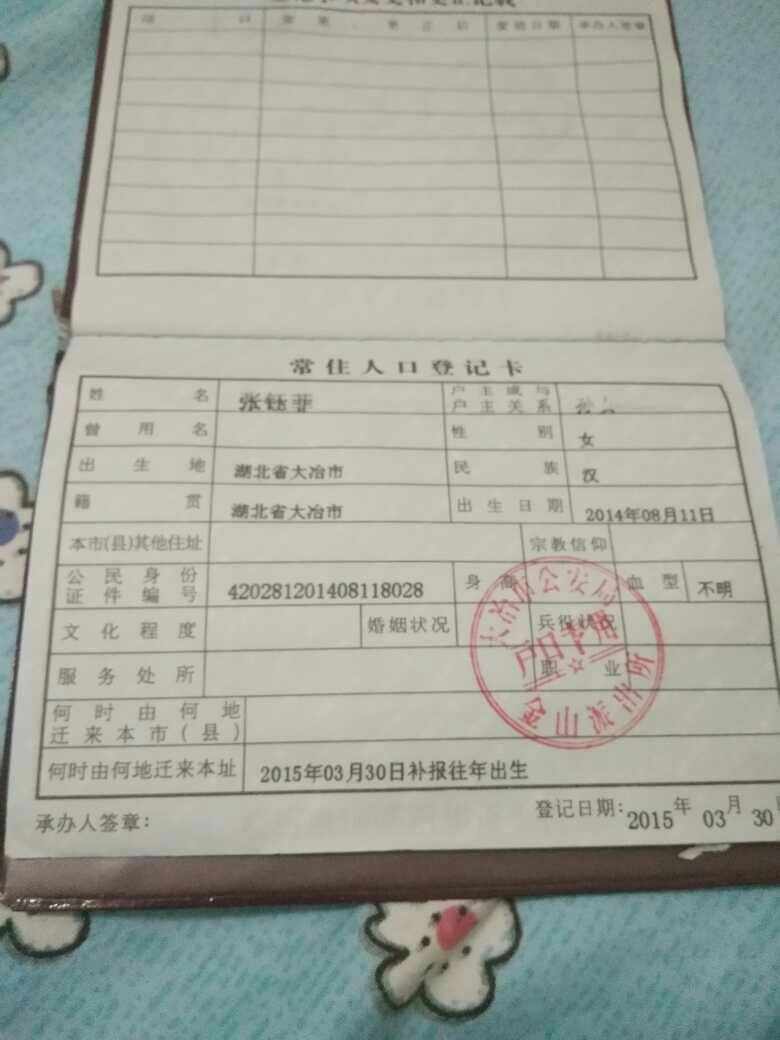 常住人口登记卡
姓名 张钰菲 户主或与户主关系
曾用名 性别 女
出生地 湖北省大冶市 民族 汉
籍贯 湖北省大冶市 出生日期 2014年08月11日
本市(县)其他住址 宗教信仰
公民身份证件编号 420281201408118028 身高 血型 不明
文化程度 婚姻状况 兵役状况
服务处所 职业
何时由何地迁来本市(县)
何时由何地迁来本址 2015年03月30日补报往年出生
承办人签章: 登记日期:2015年03月30
大冶市公安局
户口专用
金山派出所